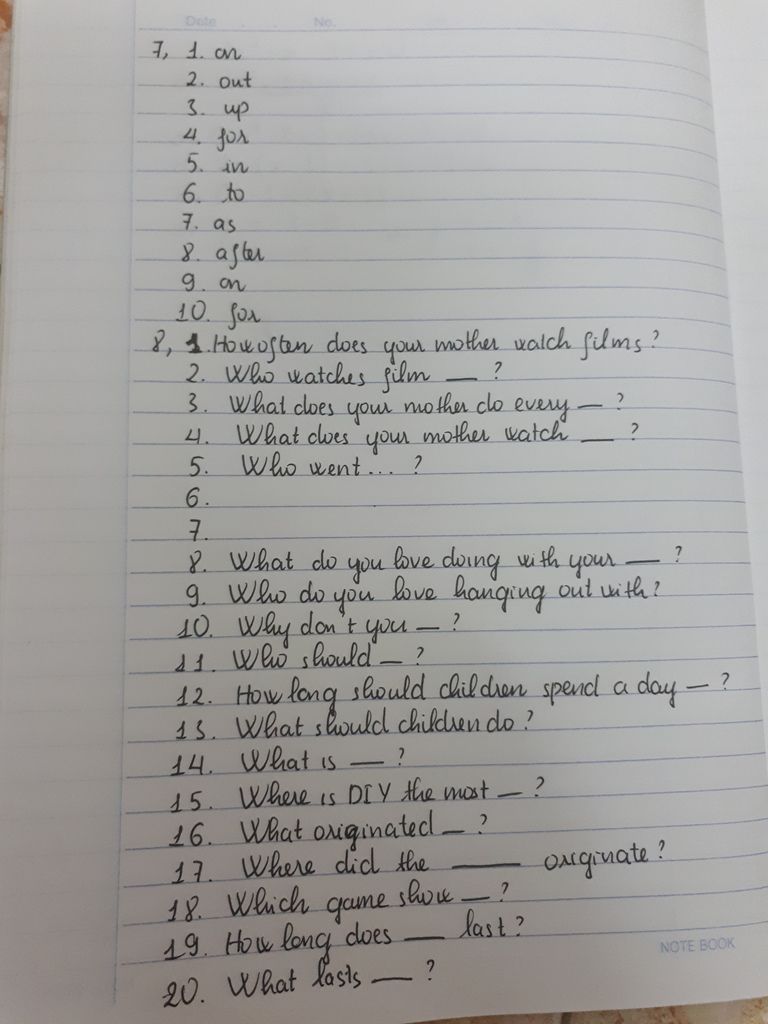 Date . . No.
7, 1. on
2. out
3. up
4. for
5. in
6. to
7. as
8. after
9. on
10. for
8, 1. How often does your mother watch films?
2. Who watches film __ ?
3. What does your mother do every _ ?
4. What does your mother watch __ ?
5. Who went... ?
6.
7.
8. What do you love doing with your __ ?
9. Who do you love hanging out with?
10. Why don't you _ ?
11. Who should _ ?
12. How long should children spend a day _ ?
13. What should children do?
14. What is __ ?
15. Where is DIY the most _ ?
16. What originated _ ?
17. Where did the ____ originate?
18. Which game show _ ?
19. How long does __ last?
20. What lasts __ ?
NOTE BOOK